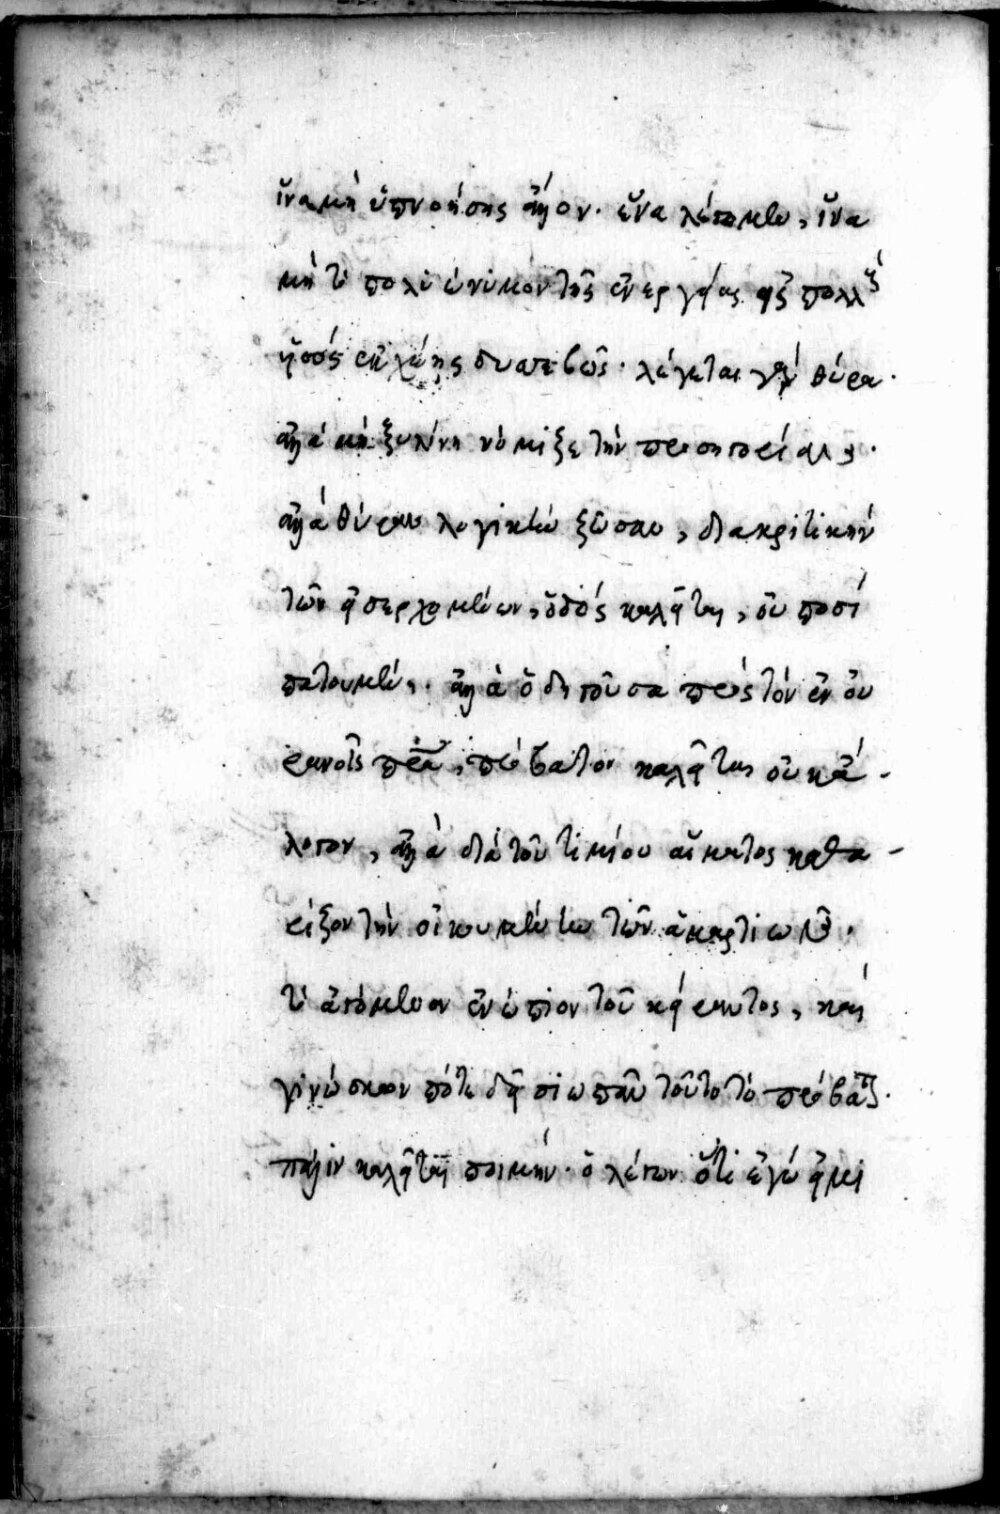 ἵνα μὴ ὑπνοήσης ἄλλον. ἕνα λέγομεν, ἵνα
μὴ τὸ πολυώνυμον τῆς ἐνεργείας εἰς πολλοὺς
υἱοὺς ἐκχέης δυσσεβῶς. λέγεται γὰρ θύρα.
ἀλλὰ μὴ ξυλίνη νόμιζε τὴν προσηγορίαν.
ἀλλὰ θύραν λογικὴν ζῶσαν, διακριτικὴν
τῶν εἰσερχομένων, ὁδὸς καλεῖται, οὐ ποσὶ
πατουμένη. ἀλλὰ ὁδηγοῦσα πρὸς τὸν ἐν οὐ
ρανοῖς πρα, πρόβατον καλεῖται οὐκ ἄ-
λογον, ἀλλὰ διὰ τοῦ τιμίου αἵματος καθα-
ρίζον τὴν οἰκουμένην τῶν ἁμαρτιῶν.
τὸ ἀγόμενον ἐνώπιον τοῦ κείραντος, καὶ
γινώσκον πότε δεῖ σιωπᾶν τοῦτο τὸ πρόβατον.
πάλιν καλεῖται ποιμήν. ὁ λέγων ὅτι ἐγώ εἰμι